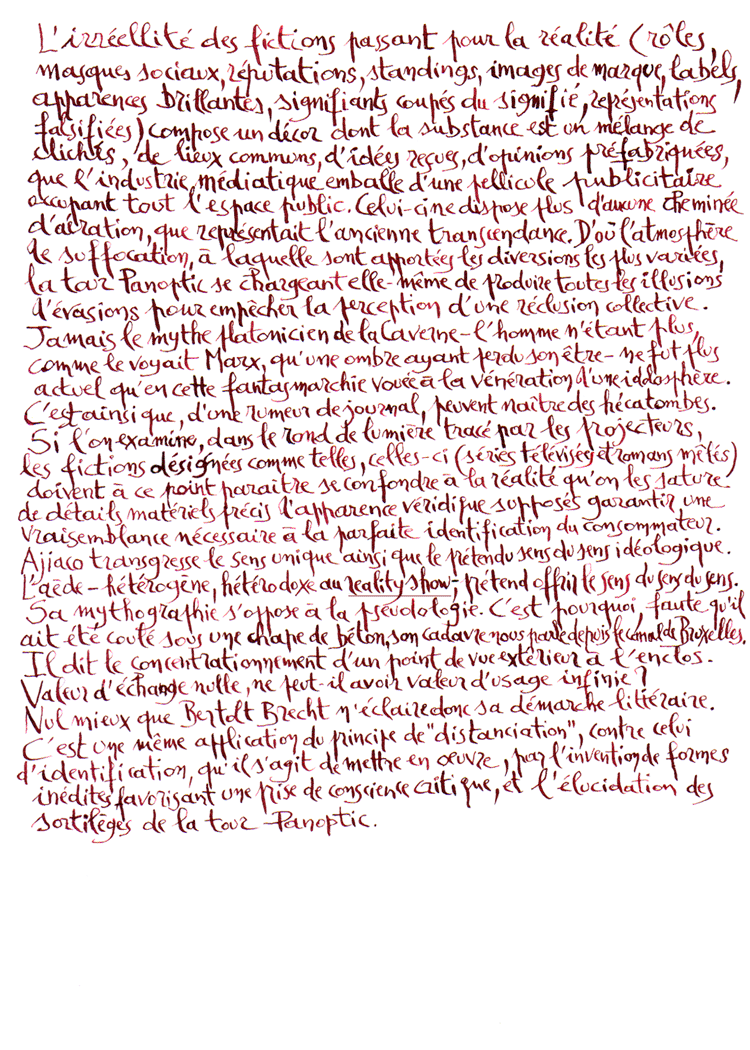 L'irréellité des fictions passant pour la réalité (rôles,
masques sociaux, réputations, standings, images de marque, labels,
apparences brillantes, signifiants coupés du signifié, représentations
falsifiées) compose un décor dont la substance est un mélange de
clichés, de lieux communs, d'idées reçues, d'opinions préfabriquées,
que l'industrie médiatique emballe d'une pellicule publicitaire
occupant tout l'espace public. Celui-ci ne dispose plus d'aucune cheminée
d'aération, que représentait l'ancienne transcendance. D'où l'atmosphère
de suffocation, à laquelle sont apportées les diversions les plus variées,
la tour Panoptic se chargeant elle-même de produire toutes les illusions
d'évasions pour empêcher la perception d'une réclusion collective.
Jamais le mythe platonicien de la Caverne – l'homme n'étant plus,
comme le voyait Marx, qu'une ombre ayant perdu son être – ne fut plus
actuel qu'en cette fantasmarchie vouée à la vénération d'une idolosphère.
C'est ainsi que, d'une rumeur de journal, peuvent naître des hécatombes.
Si l'on examine, dans le rond de lumière tracé par les projecteurs,
les fictions désignées comme telles, celles-ci (séries télévisées et romans mêlés)
doivent à ce point paraître se confondre à la réalité qu'on les sature
de détails matériels précis l'apparence véridique supposés garantir, une
vraisemblance nécessaire à la parfaite identification du consommateur.
Ajiaco transgresse le sens unique ainsi que le prétendu sens du sens idéologique.
L'aède – hétérogène, hétérodoxe au reality show –, prétend offrir le sens du sens du sens.
Sa mythographie s'oppose à la pseudologie. C'est pourquoi, faute qu'il
ait été coulé sous une chape de béton, son cadavre nous parle depuis le canal de Bruxelles.
Il dit le concentrationnement d'un point de vue extérieur à l'enclos.
Valeur d'échange nulle, ne peut-il avoir valeur d'usage infinie ?
Nul mieux que Bertolt Brecht n'éclaire donc sa démarche littéraire.
C'est une même application du principe de "distanciation", contre celui
d'identification, qu'il s'agit de mettre en oeuvre, par l'invention de formes
inédites favorisant une prise de conscience critique, et l'élucidation des
sortilèges de la tour Panoptic.